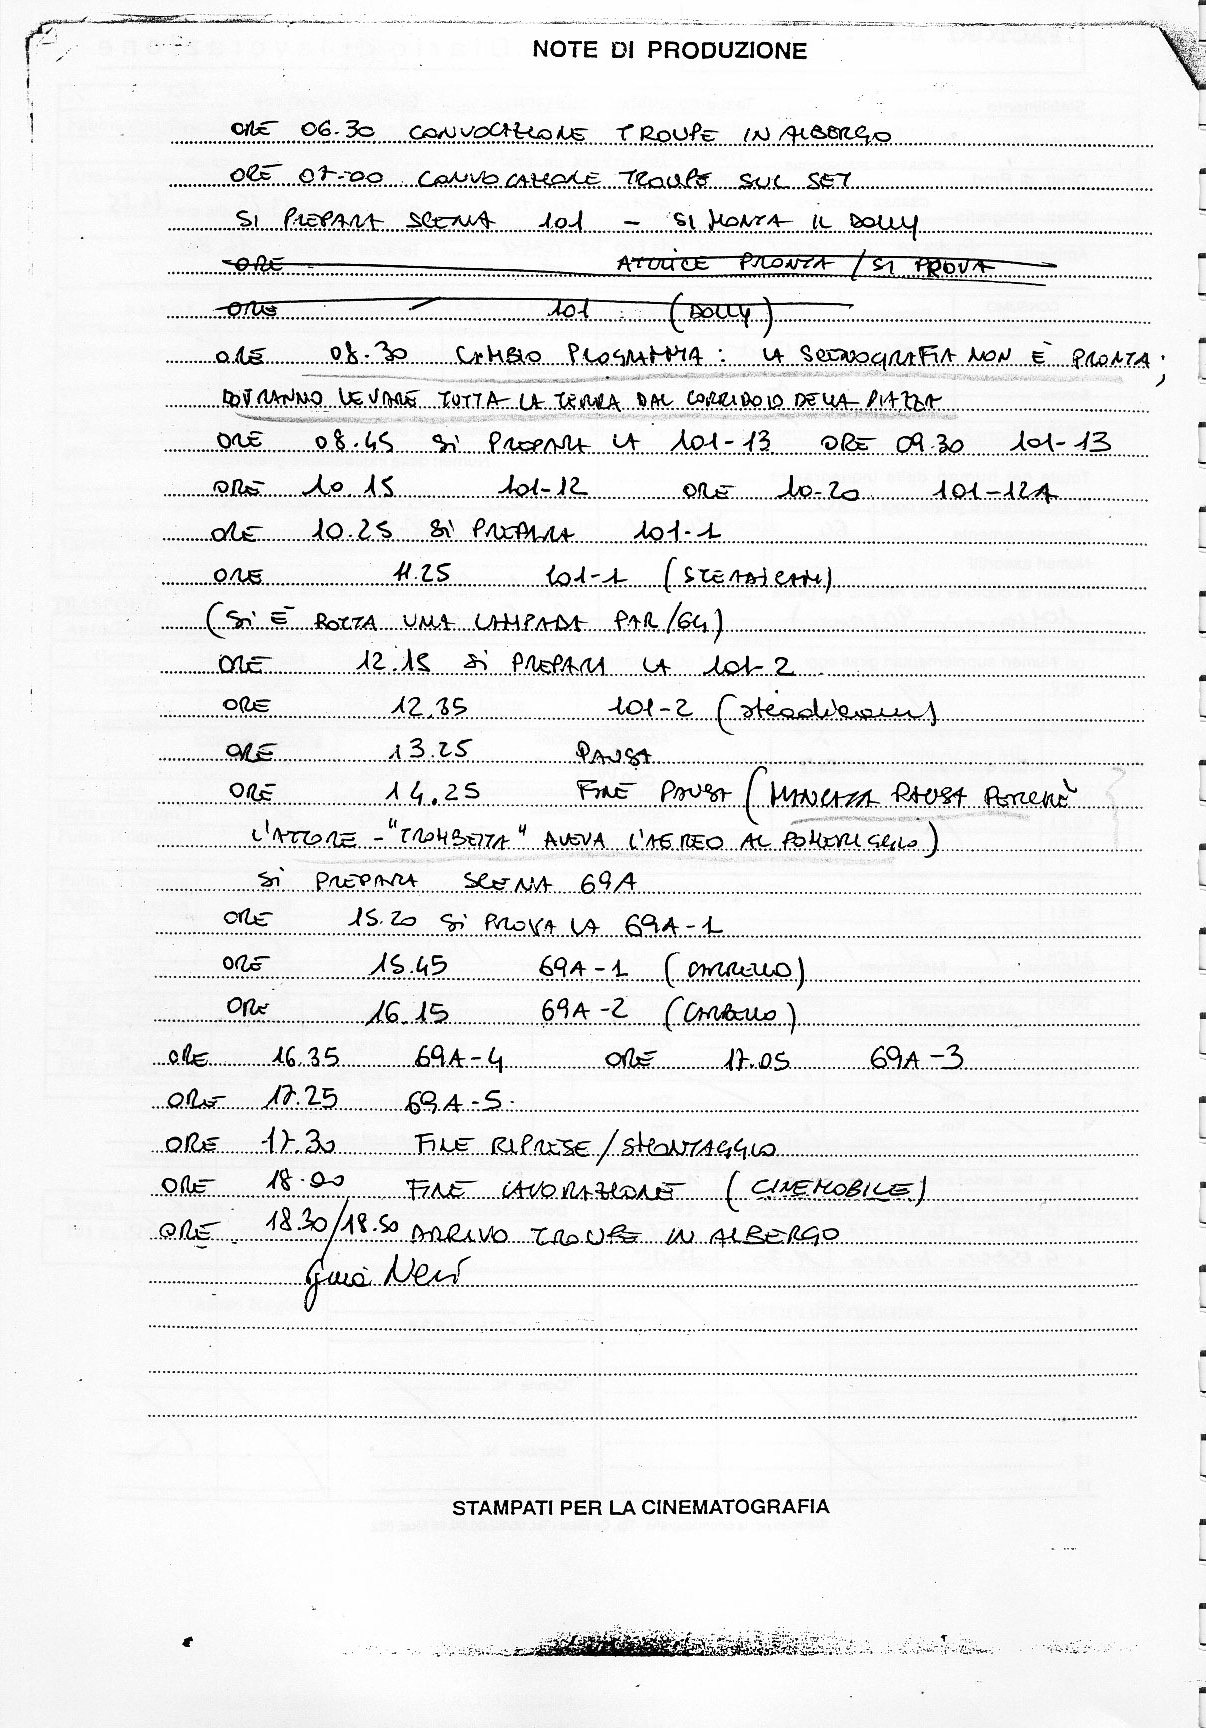 NOTE DI PRODUZIONE
ORE 06.30 CONVOCAZIONE TROUPE IN ALBERGO
ORE 07.00 CONVOCAZIONE TROUPE SUL SET
SI PREPARA SCENA 101 - SI MONTA IL DOLLY
ORE ATTRICE PRONTA / SI PROVA
ORE 101 (DOLLY)
ORE 08.30 CAMBIO PROGRAMMA: LA SCENOGRAFIA NON È PRONTA;
DOVRANNO LEVARE TUTTA LA TERRA DAL CORRIDOIO DELLA PIAZZA
ORE 08.45 SI PREPARA LA 101-13 ORE 09.30 101-13
ORE 10.15 101-12 ORE 10.20 101-12A
ORE 10.25 SI PREPARA 101-1
ORE 11.25 101-1 (STEADICAM)
(SI È ROTTA UNA LAMPADA PAR/64)
ORE 12.15 SI PREPARA LA 101-2
ORE 12.35 101-2 (steadicam)
ORE 13.25 PAUSA
ORE 14.25 FINE PAUSA (MANCATA PAUSA PERCHÈ
L'ATTORE - "TROMBETTA" AVEVA L'AEREO AL POMERIGGIO)
SI PREPARA SCENA 69A
ORE 15.20 SI PROVA LA 69A-1
ORE 15.45 69A-1 (CARRELLO)
ORE 16.15 69A-2 (CARRELLO)
ORE 16.35 69A-4 ORE 17.05 69A-3
ORE 17.25 69A-5.
ORE 17.30 FINE RIPRESE/SMONTAGGIO
ORE 18.00 FINE LAVORAZIONE (CINEMOBILE)
ORE 18.30/18.50 ARRIVO TROUPE IN ALBERGO
Neri
STAMPATI PER LA CINEMATOGRAFIA